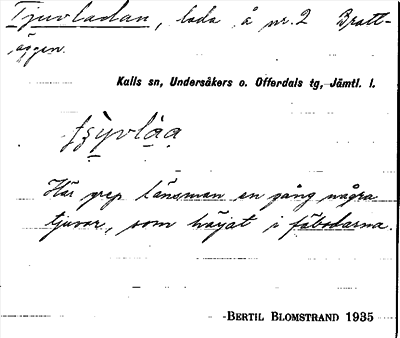 Tjuvladan, lada å nr. 2 Bratt-
äggen.
Kalls sn, Undersåkers o. Offerdals tg, Jämtl. l.
Här grep länsman en gång några
tjuvar, som härjat i fäbodarna.
-BERTIL BLOMSTRAND 1935